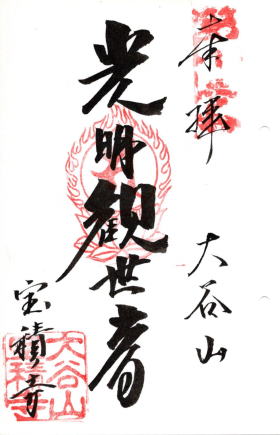 奉拝 大谷山
光明観世音
宝積寺
大谷山
宝積寺